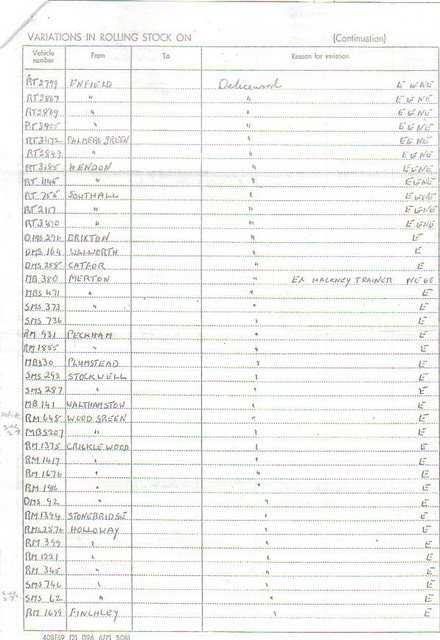 VARIATIONS IN ROLLING STOCK ON (Continuation)
Vehicle number From To Reason for variation
RT2799 ENFIELD Delicensed E UENE
RT2867 " " E UENE
RT2869 " " E UENE
" " E UENE
RT3472 PALMERS GREEN " EUENE
RT2849 " " E UENE
RT3185 HENDON " E UENE
RT 1145 " " E UENE
RT 755 SOUTHALL " E UENE
RT 2117 " " E UENE
RT3430 " " E UENE
DMS 296 BRIXTON " E
DMS 164 WALWORTH " E
DMS 258 CATFOR " E
MB 380 MERTON " EX HACKNEY TRAINER
MBS 471 " " E
SMS 373 " " E
SMS 736 " E
RM 931 PECKHAM " E
RM 1855 " " E
MB530 PLUMSTEAD " E
SMS 292 STOCKWELL " E
SMS 287 " " E
MB 141 WALTHAMSTOW " E
RM 648 WOOD GREEN " E
MBS207 " " E
RM 1375 CRICKLEWOOD " E
RM 1417 " " E
RM 1676 " " E
RM " " E
DMS 92 " " E
RM 1394 STONEBRIDGE " E
RML2576 HOLLOWAY " E
RM 399 " " E
RM 1221 " " E
RM 345 " " E
SMS 746 " " E
SMS 62 " " E
RM 1699 FINCHLEY " E